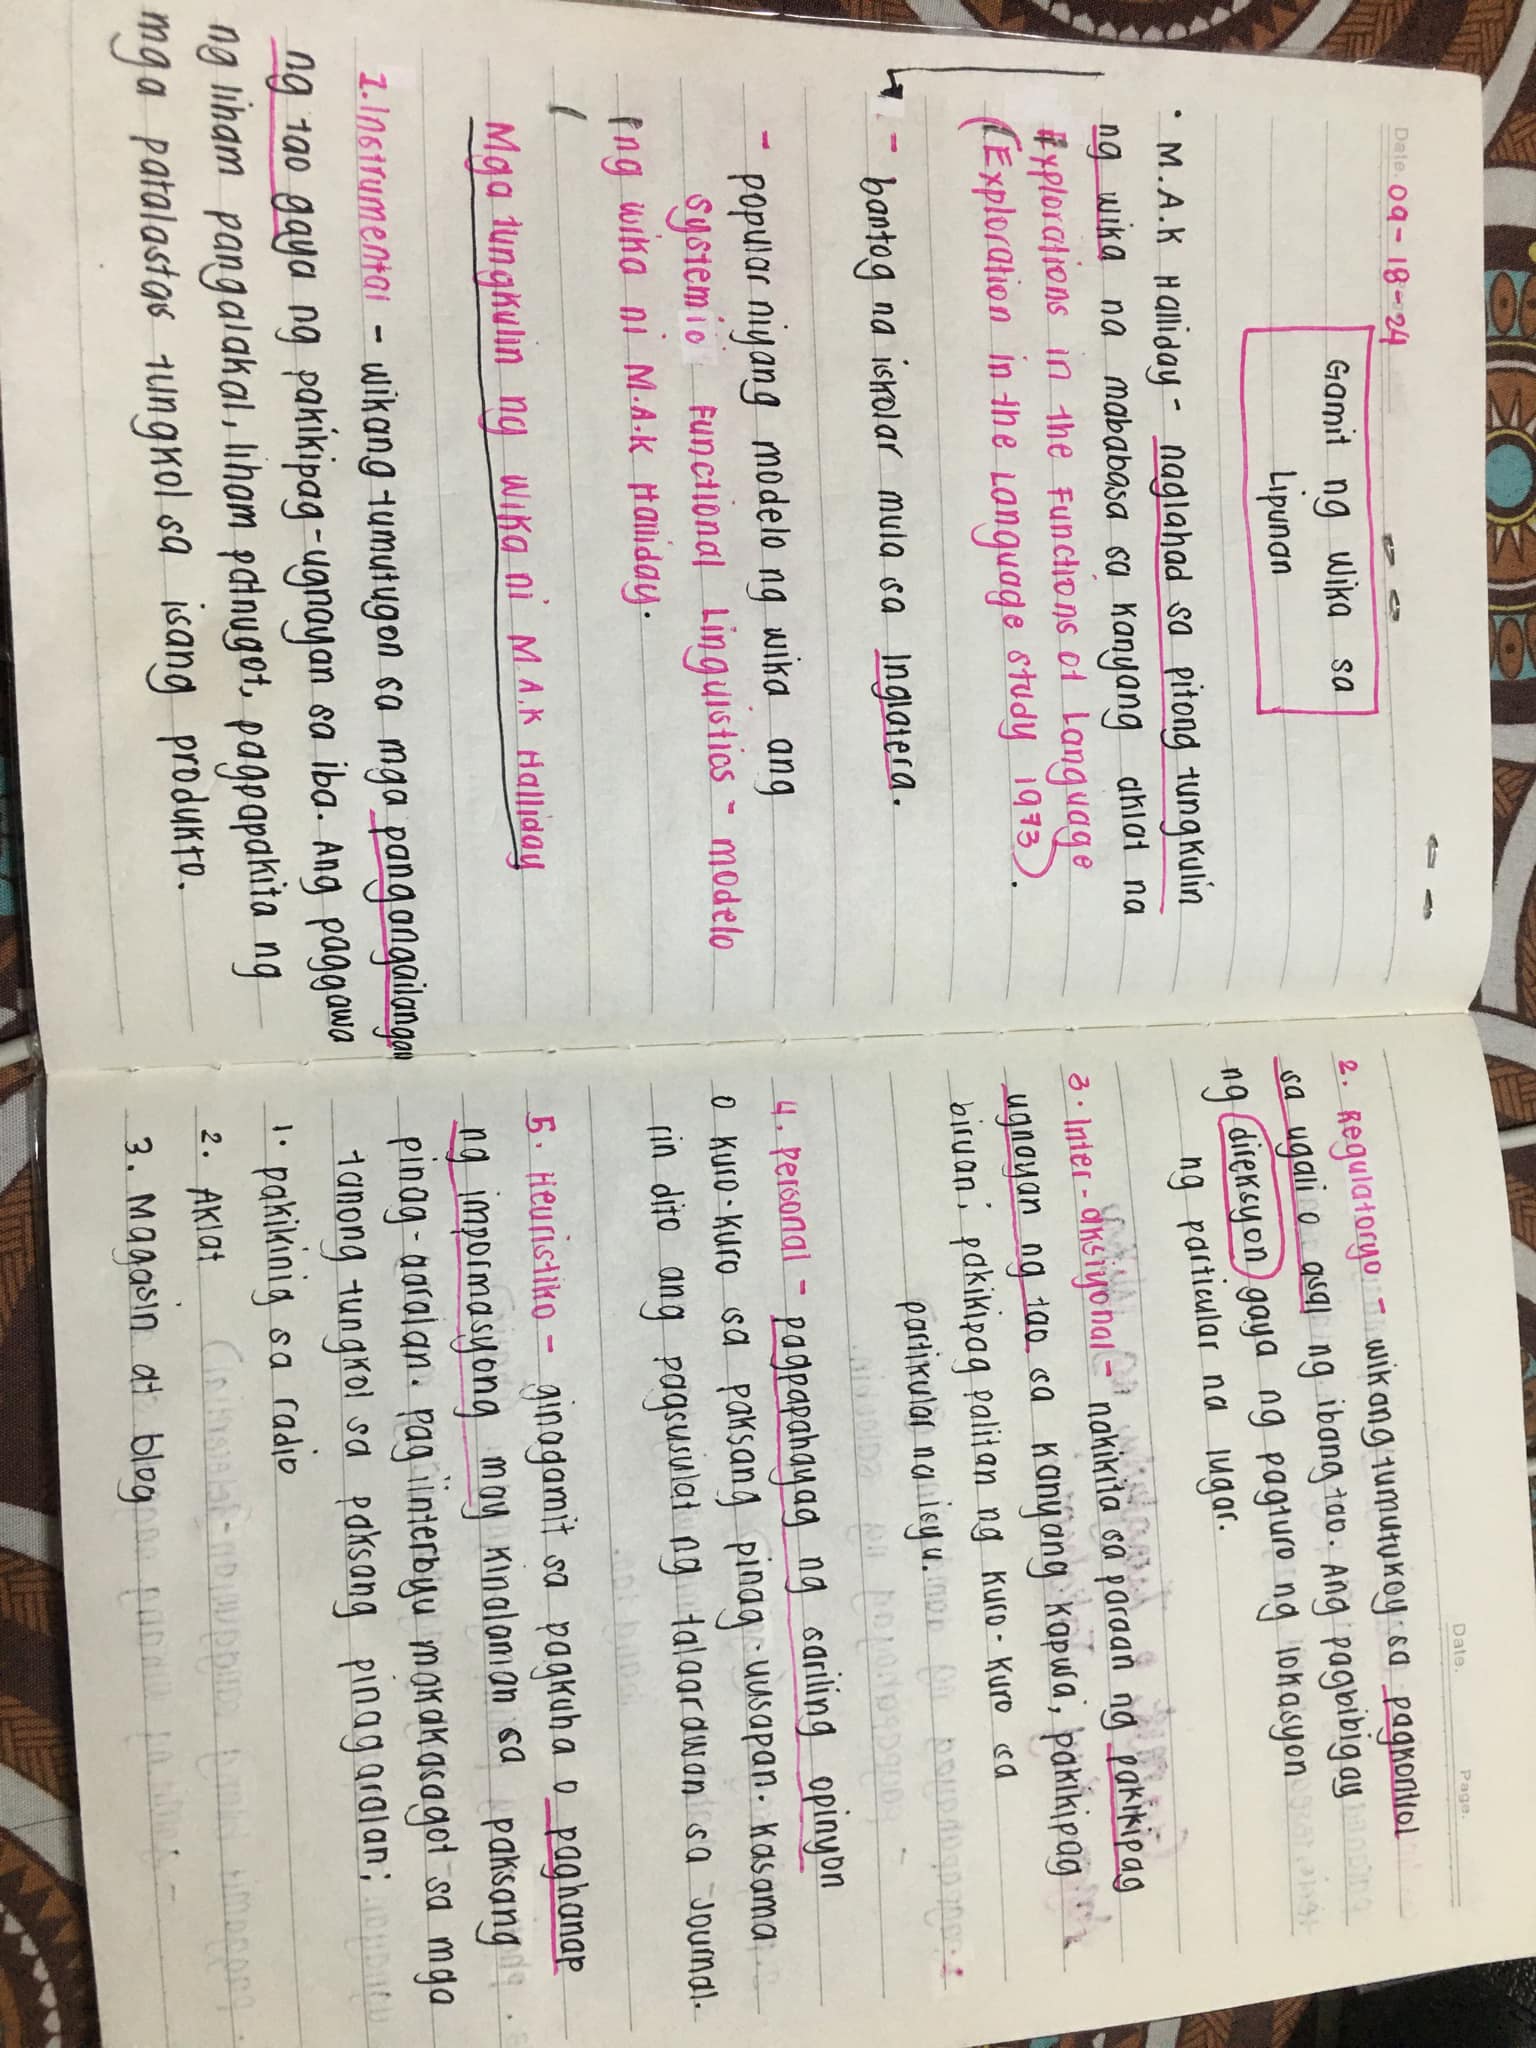 Date. 09-18-24
Gamit ng wika sa
Lipunan
• M.A.K Halliday - naglahad sa pitong tungkulin
ng wika na mababasa sa kanyang aklat na
Explorations in the Functions of Language
(Exploration in the Language study 1973).
- bantog na iskolar mula sa Inglatera.
- popular niyang modelo ng wika ang
systemic Functional Linguistics - modelo
ng wika ni M.A.K Halliday.
Mga tungkulin ng wika ni M.A.K Halliday
1. Instrumental - wikang tumutugon sa mga pangangailangan
ng tao gaya ng pakikipag-ugnayan sa iba. Ang paggawa
ng liham pangalakal, liham patnugot, pagpapakita ng
mga patalastas tungkol sa isang produkto.
Date.
Page.
2. Regulatoryo - wikang tumutukoy sa pagkontrol
sa ugali o asal ng ibang tao. Ang pagbibigay
ng direksyon gaya ng pagturo ng lokasyon
ng particular na lugar.
3. Inter-aksiyonal - nakikita sa paraan ng pakikipag
ugnayan ng tao sa kanyang kapwa, pakikipag
biruan; pakikipag palitan ng kuro-kuro sa
partikular na isyu.
4. Personal - pagpapahayag ng sariling opinyon
o kuro-kuro sa paksang pinag-uusapan. Kasama
rin dito ang pagsusulat ng talaarawan sa Journal.
5. Heuristiko - ginagamit sa pagkuha o paghanap
ng impormasyong may kinalaman sa paksang
pinag-aaralan. pag iinterbyu makakasagot sa mga
tanong tungkol sa paksang pinagaralan;
1. pakikinig sa radio
2. Aklat
3. Magasin at blog